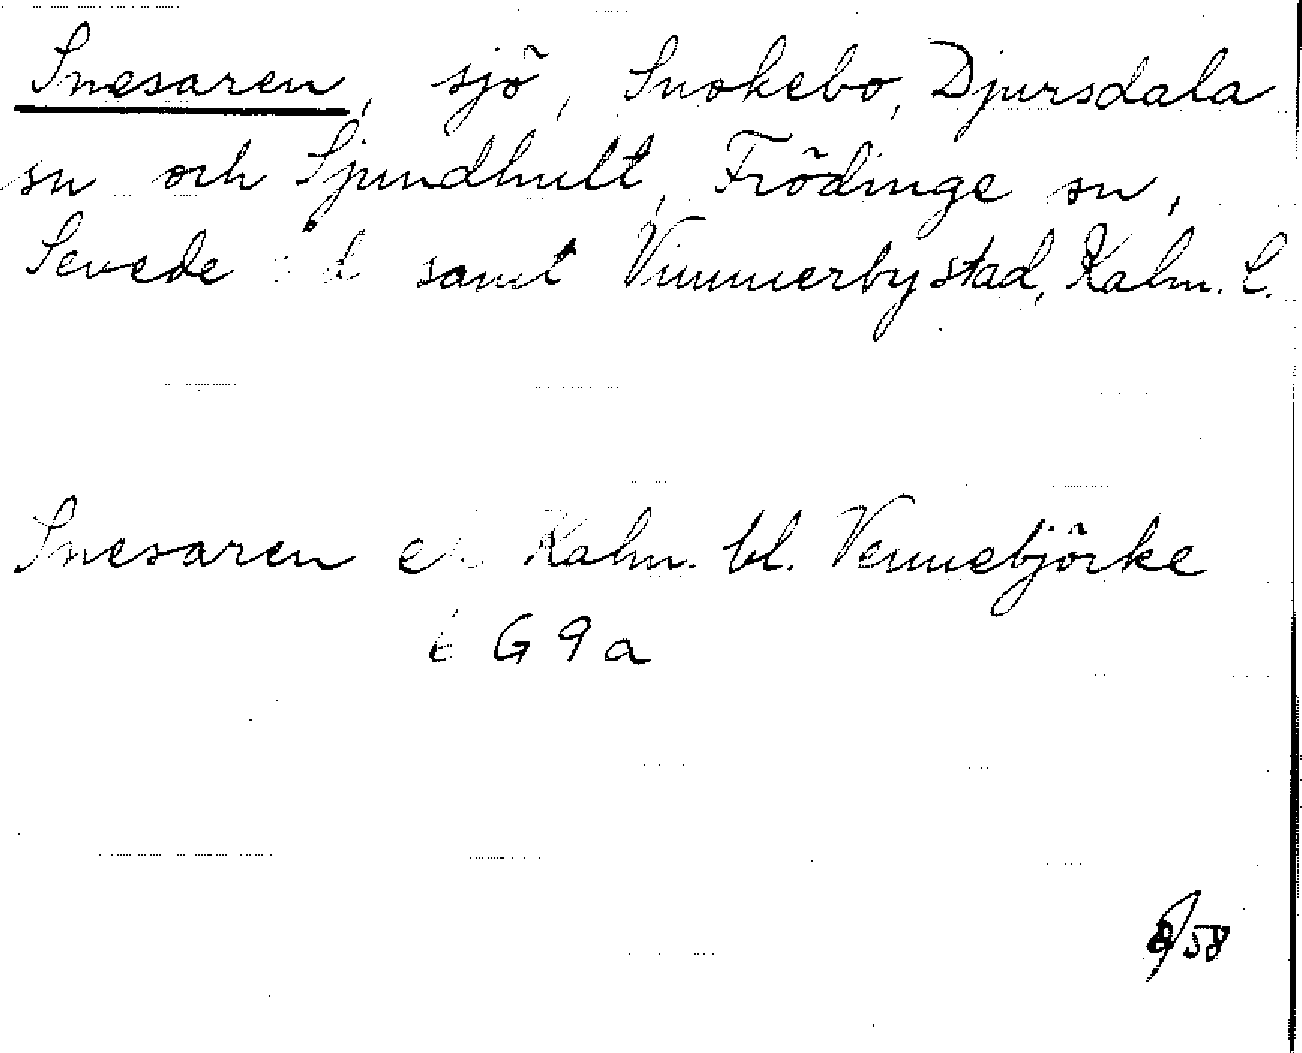 Snesaren, sjö, Snokebo, Djursdala
sn och Sjundhult, Frödinge sn,
Sevede hd samt Vimmerby stad, Kalm. l.
Snesaren ek Kalm. bl. Vennebjörke
G 9 a
/58